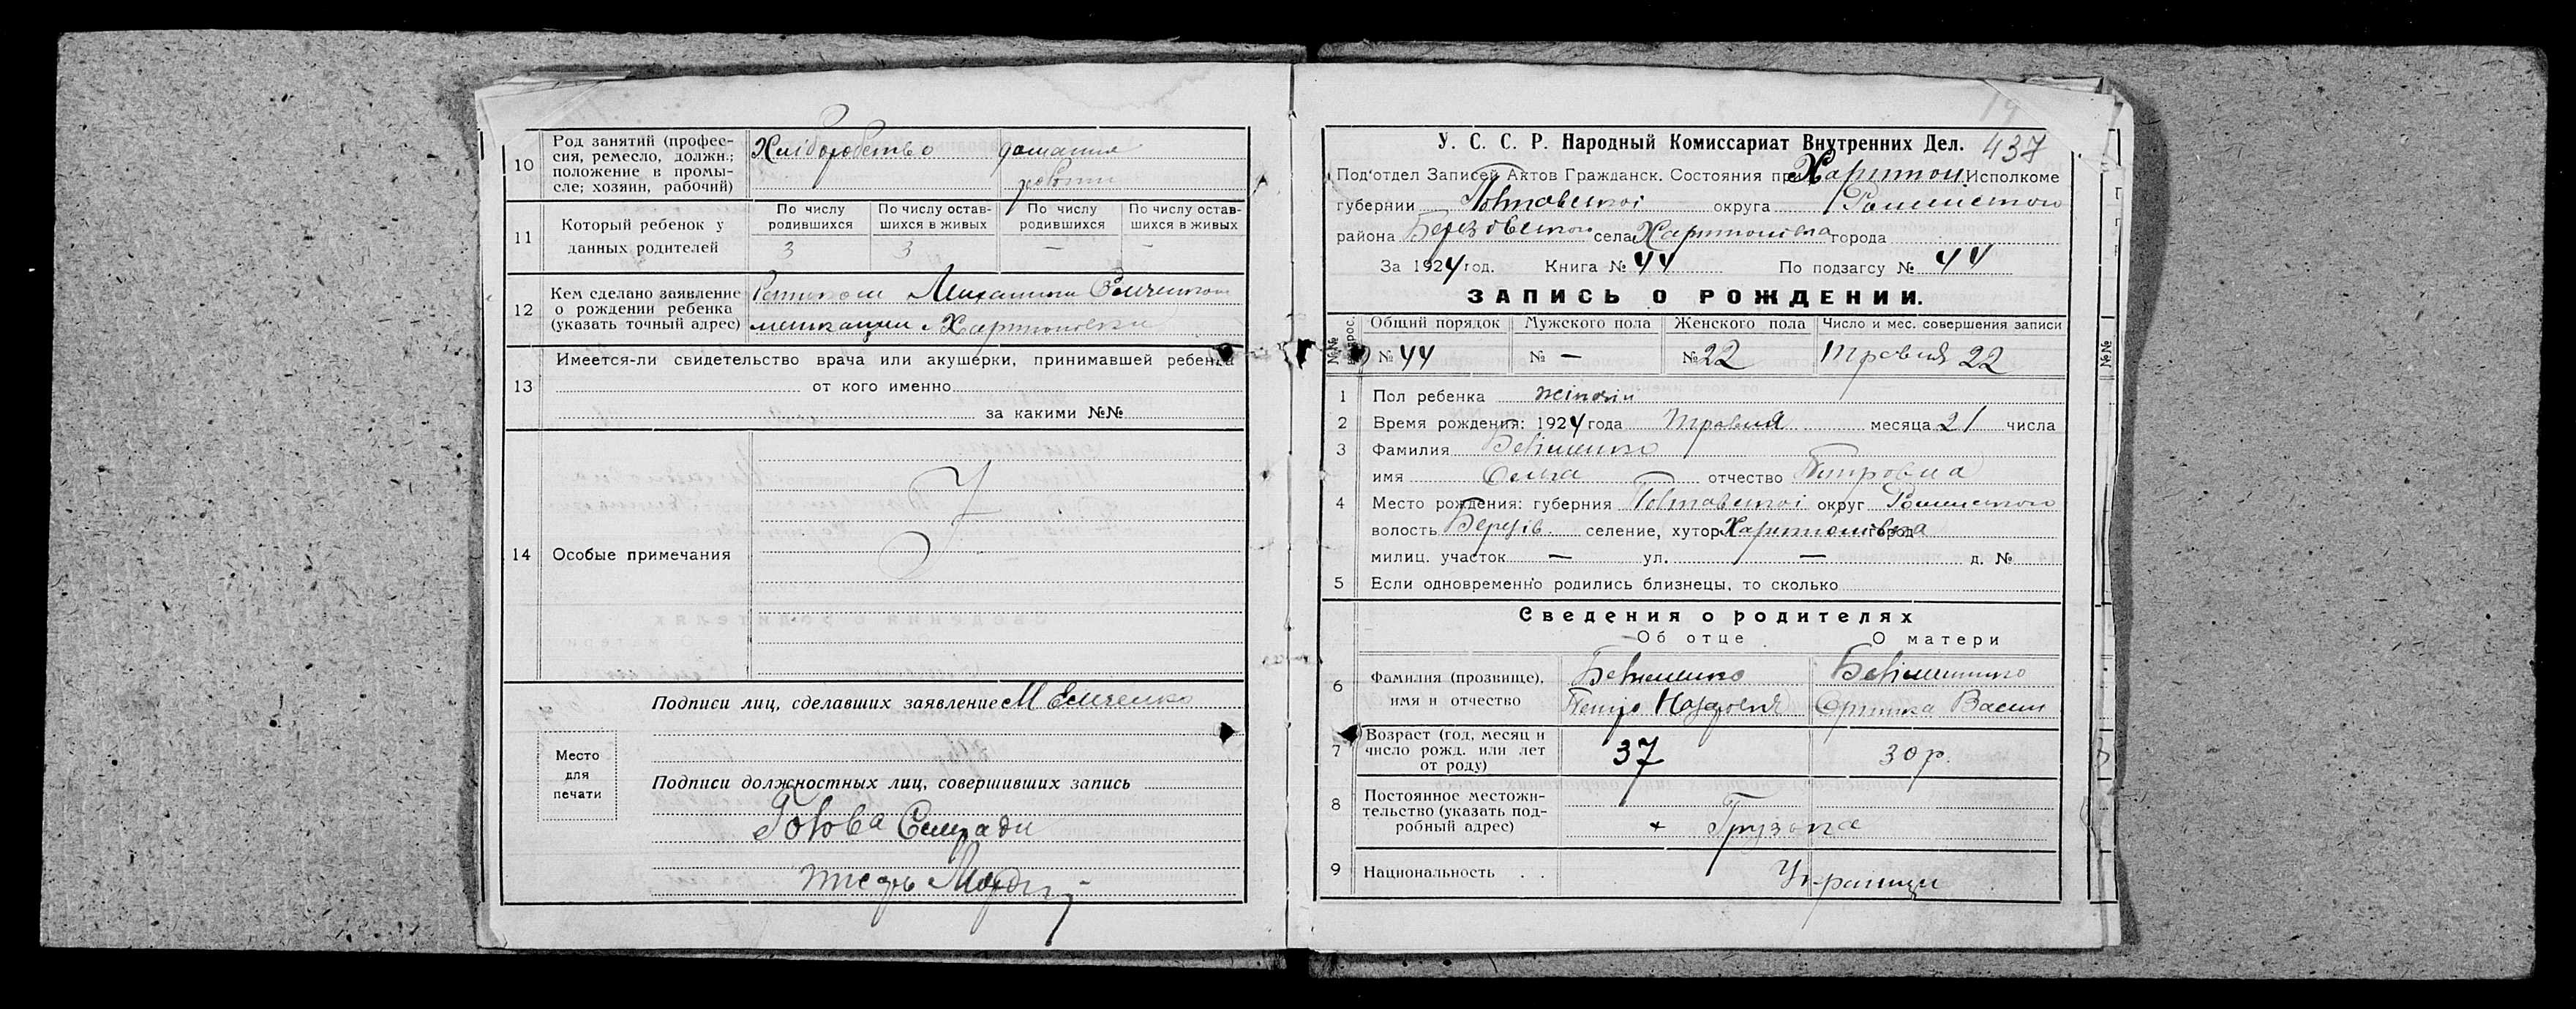 10 Род занятий (профес-
сия, ремесло, должн.;
положение в промы-
сле; хозяин, рабочий)
Хліборобство
домашня
робота
11 Который ребенок у
данных родителей
По числу
родившихся
По числу остав-
шихся в живых
По числу
родившихся
По числу остав-
шихся в живых
3 3 — —
12 Кем сделано заявление
о рождении ребенка
(указать точный адрес)
Михайлом
мешканцем Харитоновки
13 Имеется-ли свидетельство врача или акушерки, принимавшей ребенка
от кого именно
за какими №№
14 Особые примечания
Подписи лиц, сделавших заявление М Емченко
Место
для
печати
Подписи должностных лиц, совершивших запись
Голова Сельради
437
У. С. С. Р. Народный Комиссариат Внутренних Дел.
Под'отдел Записей Актов Гражданск. Состояния при Харитон. Исполкоме
губернии Полтавської округа Роменського
района Березовського села Харитоновка города
За 1924 год. Книга № 44 По подзагсу № 44
ЗАПИСЬ О РОЖДЕНИИ.
№№ вопрос.
Общий порядок
Мужского пола
Женского пола
Число и мес. совершения записи
№ 44 № — № 22 Травня 22
1 Пол ребенка жіночій
2 Время рождения: 1924 года Травня месяца 21 числа
3 Фамилия
имя Ольга отчество Петровна
4 Место рождения: губерния Полтавської округ Роменського
волость Березів. селение, хутор Харитоновка город
милиц. участок — ул. — д. №
5 Если одновременно родились близнецы, то сколько
Сведения о родителях
Об отце О матери
6 Фамилия (прозвище),
имя и отчество
Петро Назарович
Оришка Васил
7 Возраст (год, месяц и
число рожд. или лет
от роду)
37 30 р.
8 Постоянное местожи-
тельство (указать под-
робный адрес)
х Грузька
9 Национальность . .
Українці
№№